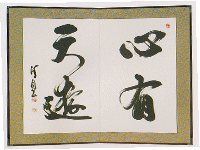 心有
天遊